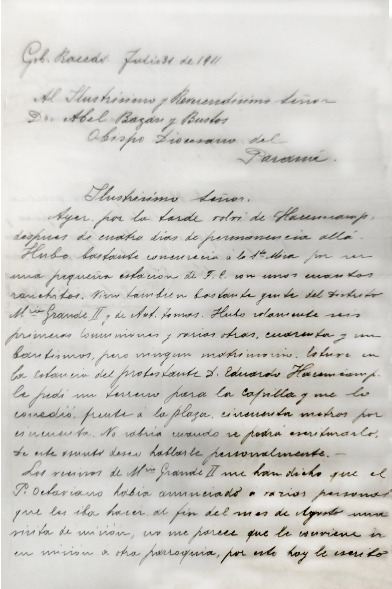 Gob. Racedo Julio 31 de 1911
Al Ilustrísimo y Reverendísimo Señor
Dr. Abel Bazán y Bustos
Obispo Diocesano del
Paraná.
Ilustrísimo Señor.
Ayer por la tarde volví de Hacencamp,
despues de cuatro dias de permanencia allá.
Hubo bastante concurrencia á la Sta. Misa por ser
una pequeña estación de F. C. con unos cuantos
ranchitos. Vino tambien bastante gente del Distrito
Mtra Grande II y de Hubo solamente seis
primeras comuniones y varias otras, cuarenta y un
bautismos, pero ningun matrimonio. Estuve en
la estancia del protestante D. Eduardo Hacencamp.
le pedí un terreno para la Capilla y me lo
concedió, frente á la plaza, cincuenta metros por
cincuenta. No sabía cuando se podrá escriturarlo.
De este asunto deseo hablarle personalmente. –
Los vecinos de Mtra Grande II me han dicho que el
P. Octaviano había anunciado a varias personas
que les iba hacer al fin del mes de Agosto una
visita de misión, no me parece que le conviene ir
en misión a otra parroquia, por esto hoy le escribo